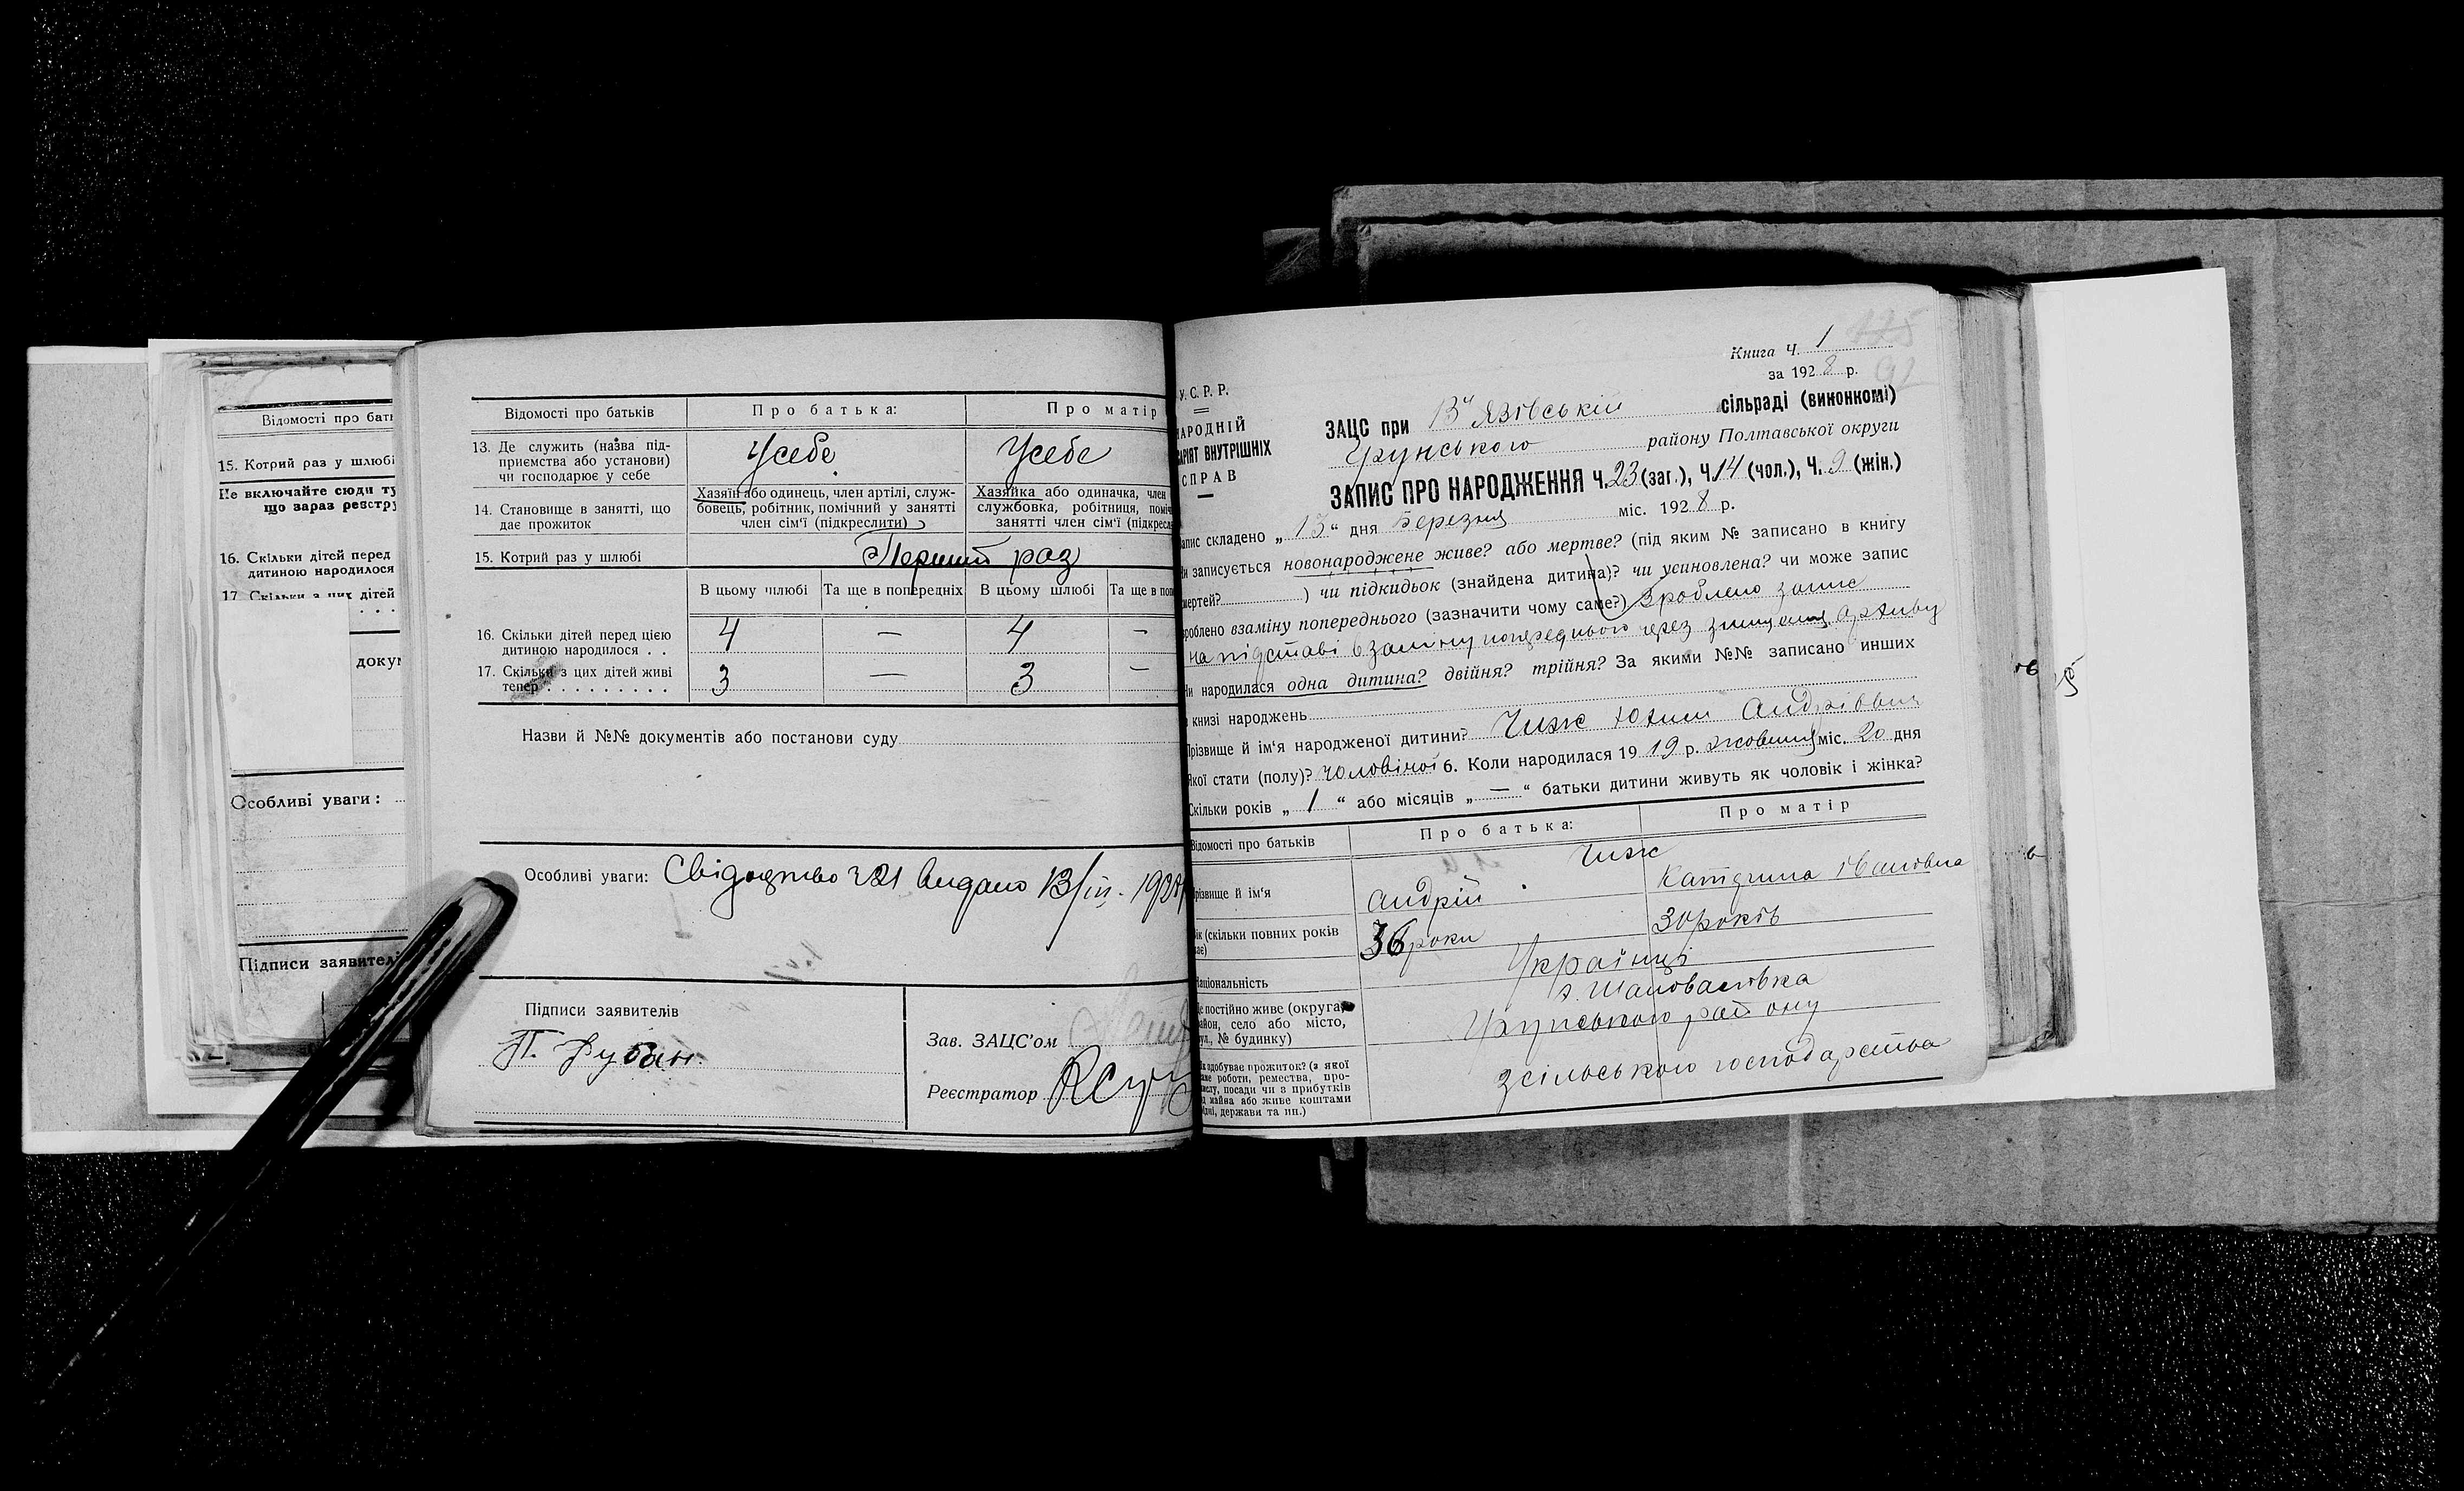 Відомості про бать
15. Котрий раз у шлюбі
Не включайте сюди ту
що зараз реєстру
16. Скільки дітей перед
дитиною народилося
17. Скільки з цих дітей
. . .
докум
Особливі уваги:
Підписи заявителі
Відомості про батьків
Про батька:
Про матір
13. Де служить (назва під-
приємства або установи)
чи господарює у себе
Усебе
Усебе
14. Становище в занятті, що
дає прожиток
Хазяїн або одинець, член артілі, служ-
бовець, робітник, помічний у занятті
член сім'ї (підкреслити)
Хазяйка або одиначка, член
службовка, робітниця, поміч
занятті член сім'ї (підкресл
15. Котрий раз у шлюбі
Перший раз
В цьому шлюбі
Та ще в попередніх
В цьому шлюбі
Та ще в поп
16. Скільки дітей перед цією
дитиною народилося . .
4 — 4 —
17. Скільки з цих дітей живі
тепер . . . . . . . . . .
3 — 3 —
Назви й №№ документів або постанови суду
Особливі уваги: Свідоцтво ч21 видано 13/III. 1928
Підписи заявителів
П. Рубан.
Зав. ЗАЦС'ом
Реєстратор
Книга Ч. 1
за 1928 р.
У.С.Р.Р.
АРОДНІЙ
АРІЯТ ВНУТРІШНІХ
СПРАВ
ЗАЦС при В'язівській сільраді (виконкомі)
Грунського району Полтавської округи
ЗАПИС ПРО НАРОДЖЕННЯ Ч. 23 (заг.), Ч. 14 (чол.), Ч. 9 (жін.)
апис складено „13“ дня Березня міс. 1928 р.
и записується новонароджене живе? або мертве? (під яким № записано в книгу
мертей? ) чи підкидьок (знайдена дитина)? чи усиновлена? чи може запис
роблено взаміну попереднього (зазначити чому саме?) Зроблено запис
на підставі взаміну попереднього через знищення архиву
и народилася одна дитина? двійня? трійня? За якими №№ записано инших
книзі народжень
Прізвище й ім'я народженої дитини? Чиж Юхим Андрієвич
Якої стати (полу)? Чоловічої 6. Коли народилася 1919 р. жовтня міс. 20 дня
Скільки років „1“ або місяців „—“ батьки дитини живуть як чоловік і жінка?
Відомості про батьків
Про батька:
Про матір
різвище й ім'я
Чиж
Андрій
Катерина Івановна
ік (скільки повних років
ає)
36 роки
30 років
аціональність
Українці
е постійно живе (округа,
айон, село або місто,
ул., № будинку)
х. Шаповалівка
Грунського району
к здобуває прожиток? (з якої
аме роботи, ремества, про-
мислу, посади чи з прибутків
д майна або живе коштами
ідні, держави та ин.)
з сільського господарства